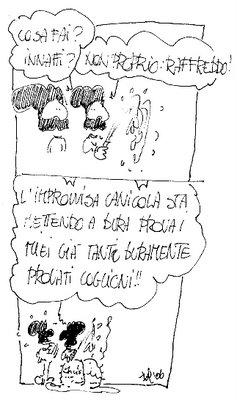 COSA FAI?
INNAFFI?
NON PROPRIO: RAFFREDDO!
L'IMPROVVISA CANICOLA STA
METTENDO A DURA PROVA I
MIEI GIÀ TANTO DURAMENTE
PROVATI COGLIONI!!